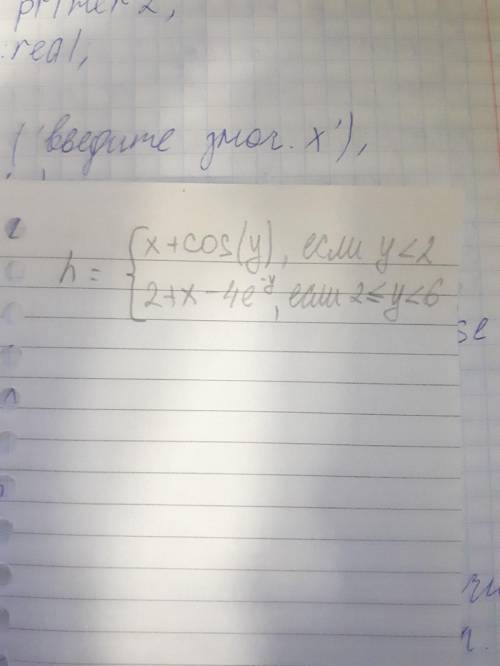 primer2;
real;
('введите знач. x');
h = { x+cos(y), если y<2
2+x-4e^-y, если 2≤y<6
se